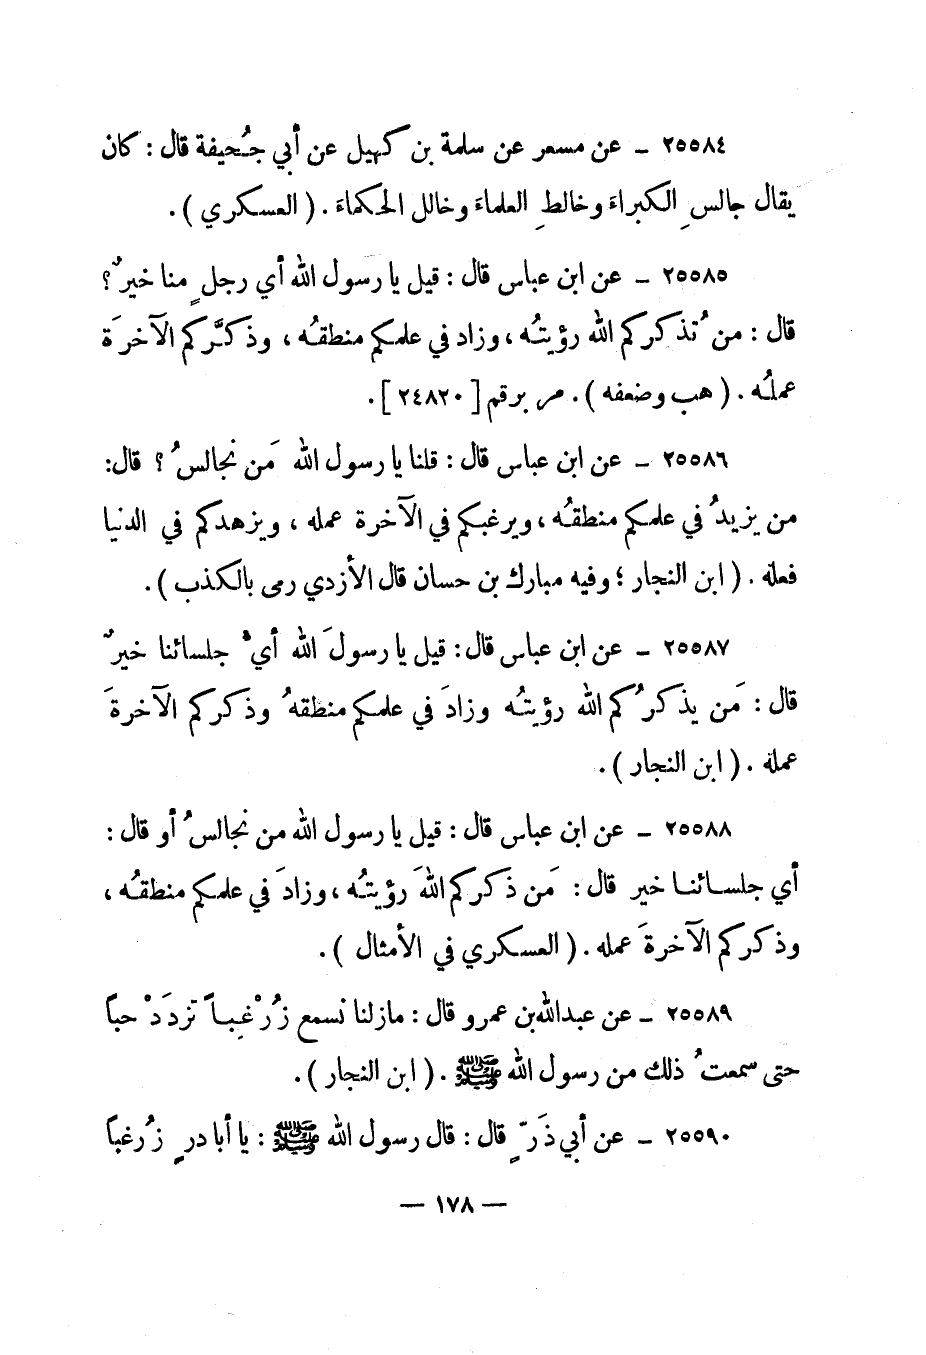 ٢٥٥٨٤ ـ عن مسعر عن سلمة بن كهيل عن أبي جُحيفة قال : كان
يقال جالسِ الكبراءَ وخالطِ العلماءَ وخالل الحكماءَ . ( العسكري ) .
٢٥٥٨٥ ـ عن ابن عباس قال : قيل يا رسول الله أي رجلٍ منا خيرٌ ؟
قال : من تُذكركم الله رؤيتُه ، وزاد في علمكم منطقُه ، وذكَّركم الآخرَة
عملُه . ( هب وضعفه ) . مر برقم [ ٢٤٨٢٠ ] .
٢٥٥٨٦ ـ عن ابن عباس قال : قلنا يا رسول الله مَن نجالسُ ؟ قال:
من يزيدُ في علمكم منطقُه ، ويرغبكم في الآخرة عمله ، ويزهدكم في الدنيا
فعله . ( ابن النجار ؛ وفيه مبارك بن حسان قال الأزدي رمى بالكذب ) .
٢٥٥٨٧ ـ عن ابن عباس قال : قيل يا رسولَ الله أيُّ جلسائنا خيرٌ
قال : مَن يذكرُكم الله رؤيتُه وزادَ في علمكم منطقهُ وذكركم الآخرةَ
عمله . ( ابن النجار ) .
٢٥٥٨٨ ـ عن ابن عباس قال : قيل يا رسول الله من نجالسُ أو قال :
أي جلسائنا خير قال : مَن ذكركم اللهَ رؤيتُه ، وزادَ في علمكم منطقُه ،
وذكركم الآخرةَ عمله . ( العسكري في الأمثال ) .
٢٥٥٨٩ ـ عن عبدالله بن عمرو قال : مازلنا نسمع زُرْ غِباً تزدَدْ حباً
حتى سمعتُ ذلك من رسول الله ﷺ . ( ابن النجار ) .
٢٥٥٩٠ ـ عن أبي ذَرٍّ قال : قال رسول الله ﷺ : يا أبا درٍ زُرغباً
— ١٧٨ —